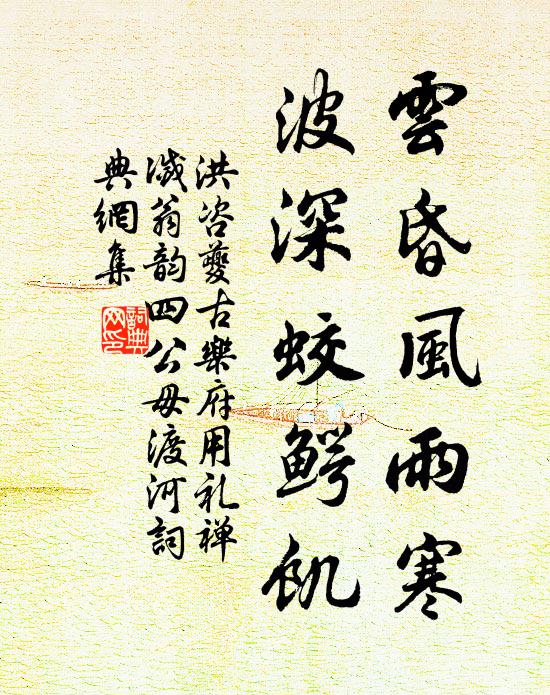 雲昏風雨寒
波深蛟鰐飢
洪咨夔古樂府用礼禅
滅翁韵四公毋渡河詞
典網集
詞典
网印